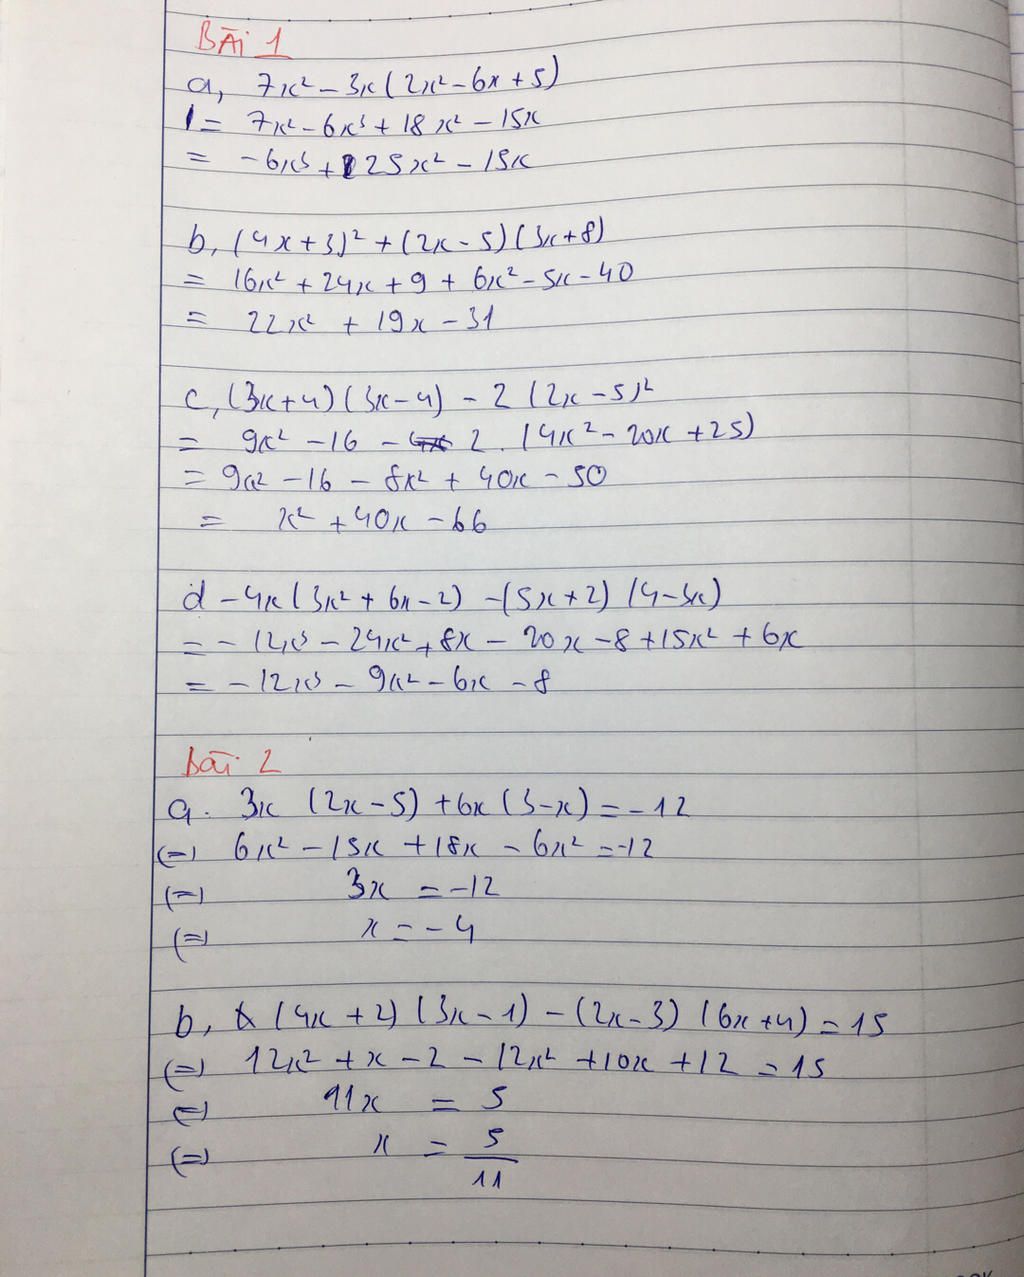 BÀi 1
a, 7x² - 3x(2x² - 6x + 5)
= 7x² - 6x³ + 18x² - 15x
= -6x³ + 25x² - 15x
b, (4x + 3)² + (2x - 5)(3x + 8)
= 16x² + 24x + 9 + 6x² - 5x - 40
= 22x² + 19x - 31
c, (3x + 4)(3x - 4) - 2(2x - 5)²
= 9x² - 16 - 2.(4x² - 20x + 25)
= 9x² - 16 - 8x² + 40x - 50
= x² + 40x - 66
d -4x(3x² + 6x - 2) - (5x + 2)(4 - 3x)
= -12x³ - 24x² + 8x - 20x - 8 + 15x² + 6x
= -12x³ - 9x² - 6x - 8
Bài 2
a. 3x (2x - 5) + 6x(3 - x) = -12
(=) 6x² - 15x + 18x - 6x² = -12
(=) 3x = -12
(=) x = -4
b, (4x + 2)(3x - 1) - (2x - 3)(6x + 4) = 15
(=) 12x² + x - 2 - 12x² + 10x + 12 = 15
(=) 11x = 5
(=) x = 5/11